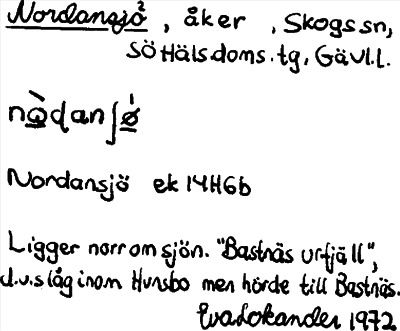 Nordansjö², åker, Skogs sn,
Sö Häls. doms. tg, Gävl. l.
nòḍanʃǿ
Nordansjö ek 14H6b
Ligger norr om sjön. "Bastnäs urfjäll",
d.v.s låg inom Hunsbo men hörde till Bastnäs.
Eva Lokander 1972